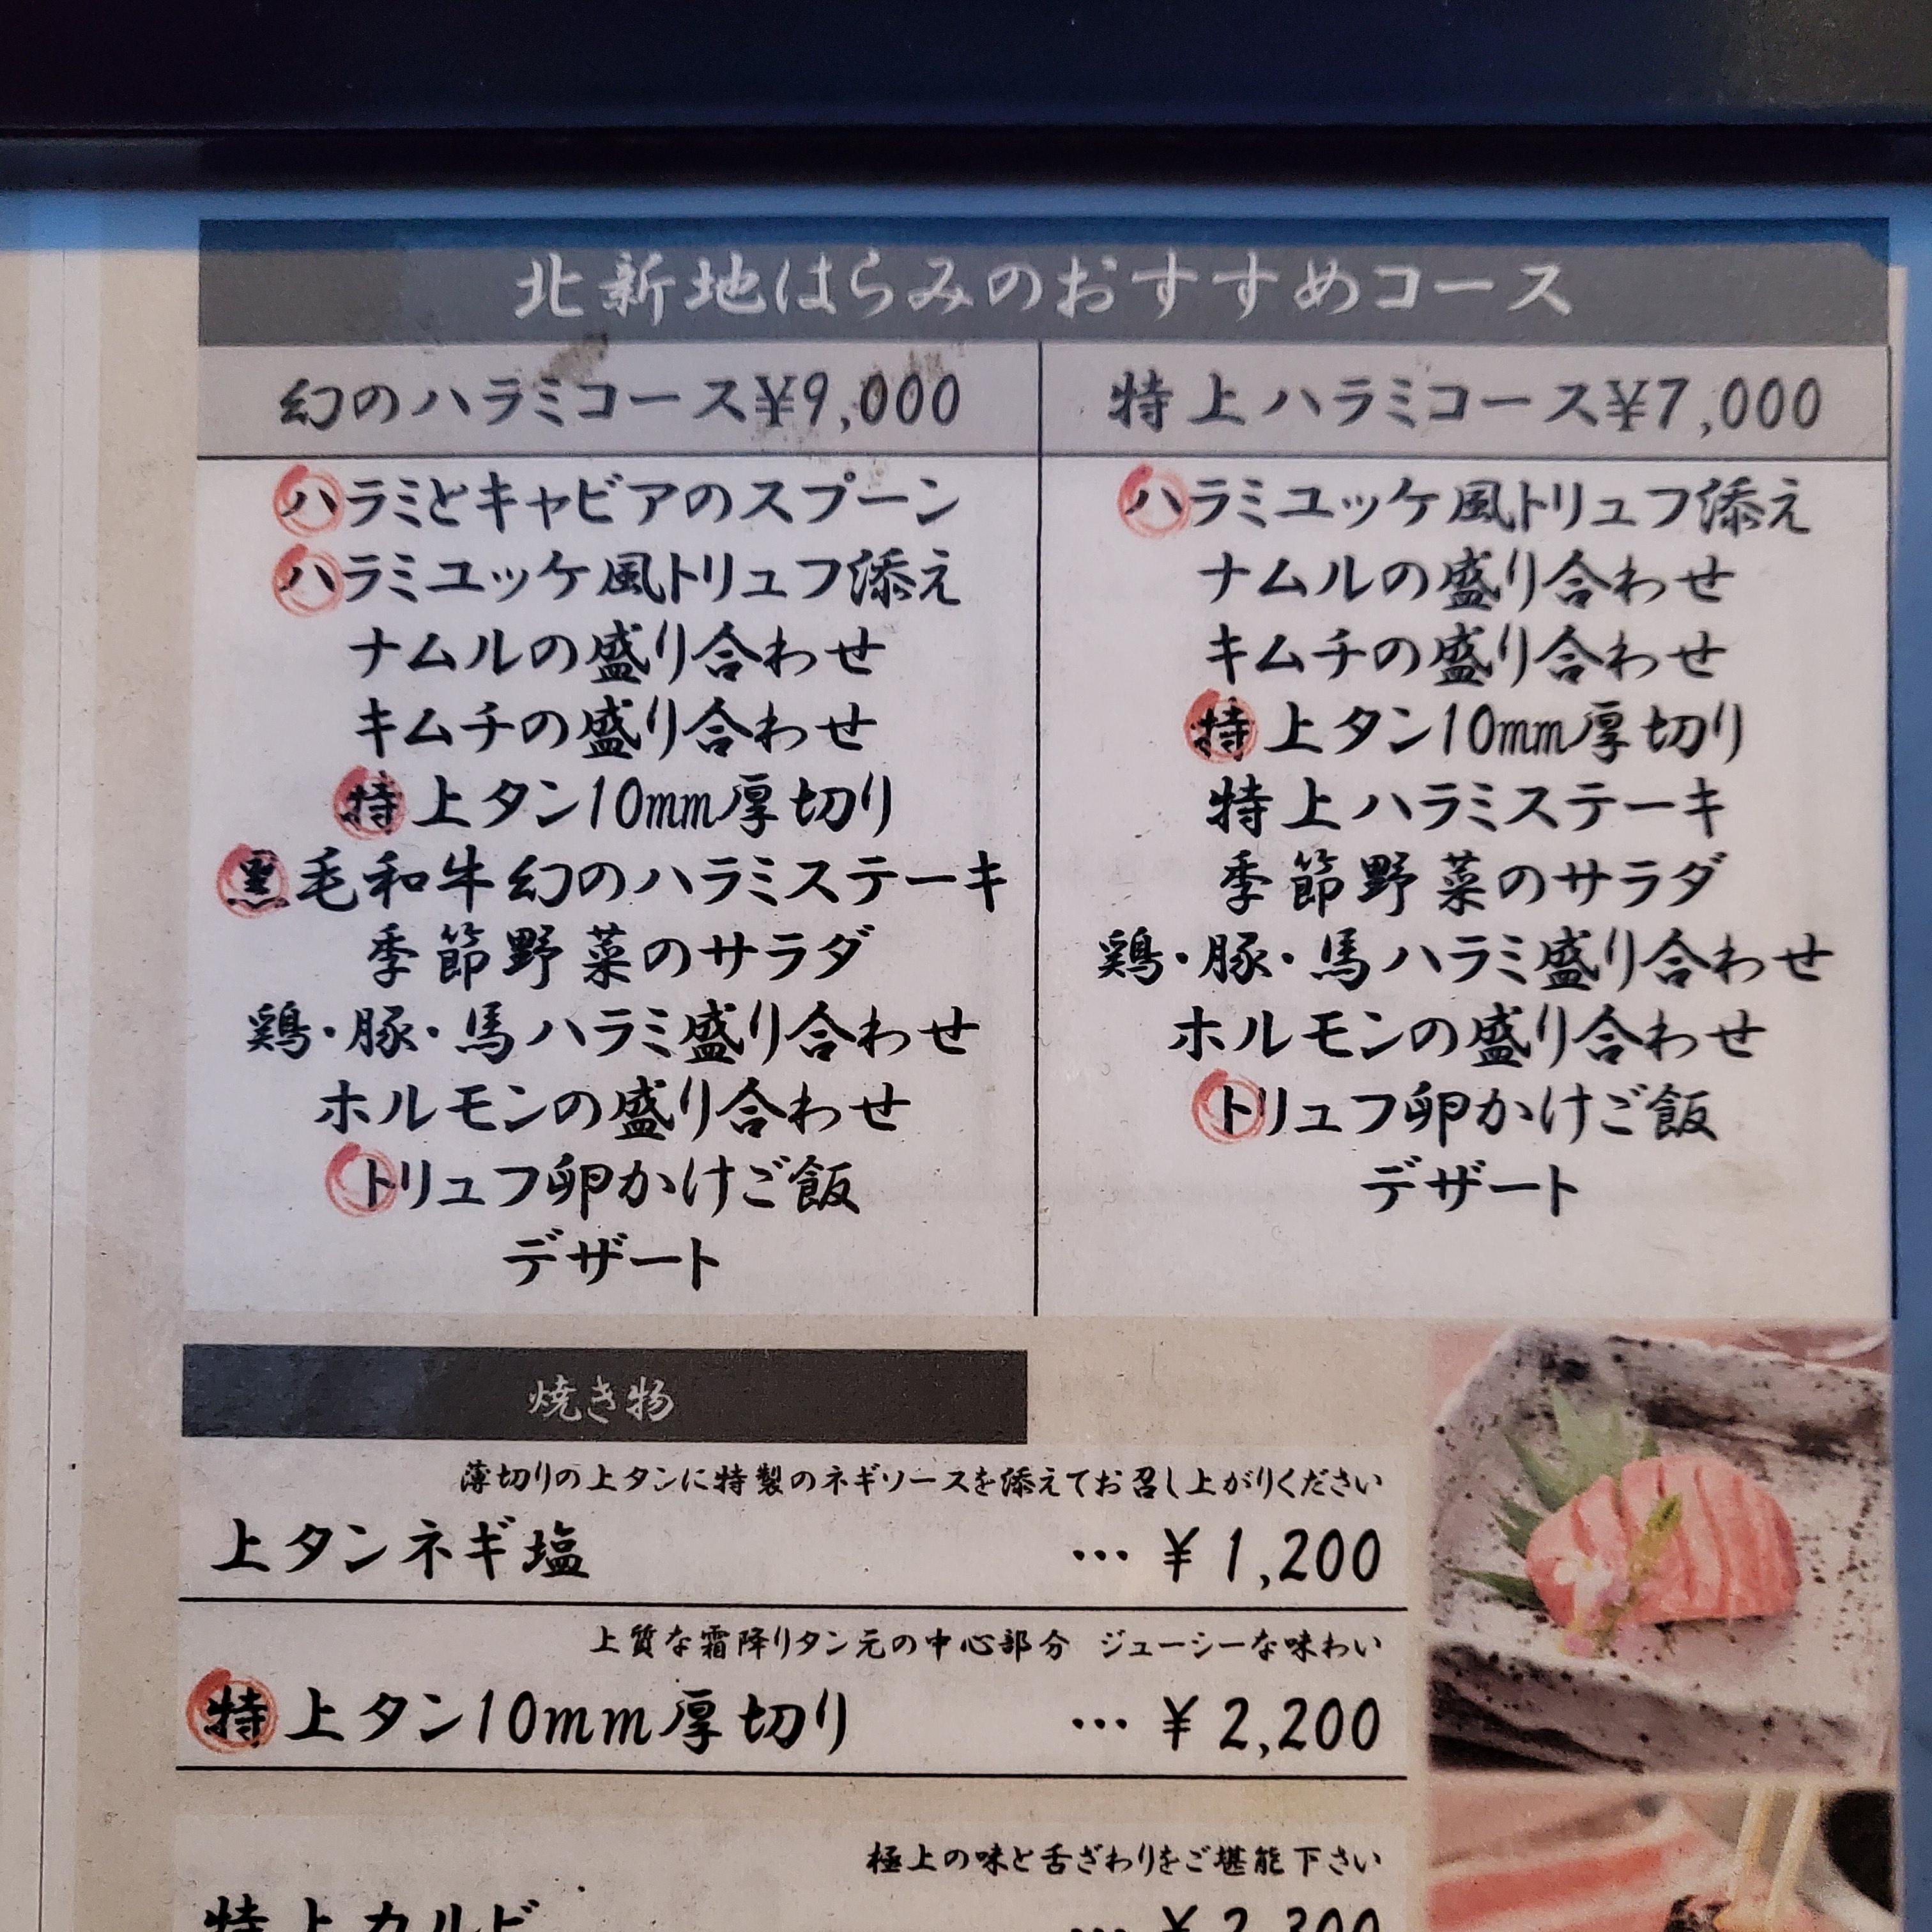 北新地はらみのおすすめコース
幻のハラミコース¥9,000
ハラミとキャビアのスプーン
ハラミユッケ風トリュフ添え
ナムルの盛り合わせ
キムチの盛り合わせ
特上タン10mm厚切り
黒毛和牛幻のハラミステーキ
季節野菜のサラダ
鶏・豚・馬ハラミ盛り合わせ
ホルモンの盛り合わせ
トリュフ卵かけご飯
デザート
特上ハラミコース¥7,000
ハラミユッケ風トリュフ添え
ナムルの盛り合わせ
キムチの盛り合わせ
特上タン10mm厚切り
特上ハラミステーキ
季節野菜のサラダ
鶏・豚・馬ハラミ盛り合わせ
ホルモンの盛り合わせ
トリュフ卵かけご飯
デザート
焼き物
薄切りの上タンに特製のネギソースを添えてお召し上がりください
上タンネギ塩 … ¥1,200
上質な霜降りタン元の中心部分 ジューシーな味わい
特上タン10mm厚切り … ¥2,200
極上の味と舌ざわりをご堪能下さい
特上カルビ … ¥2,300